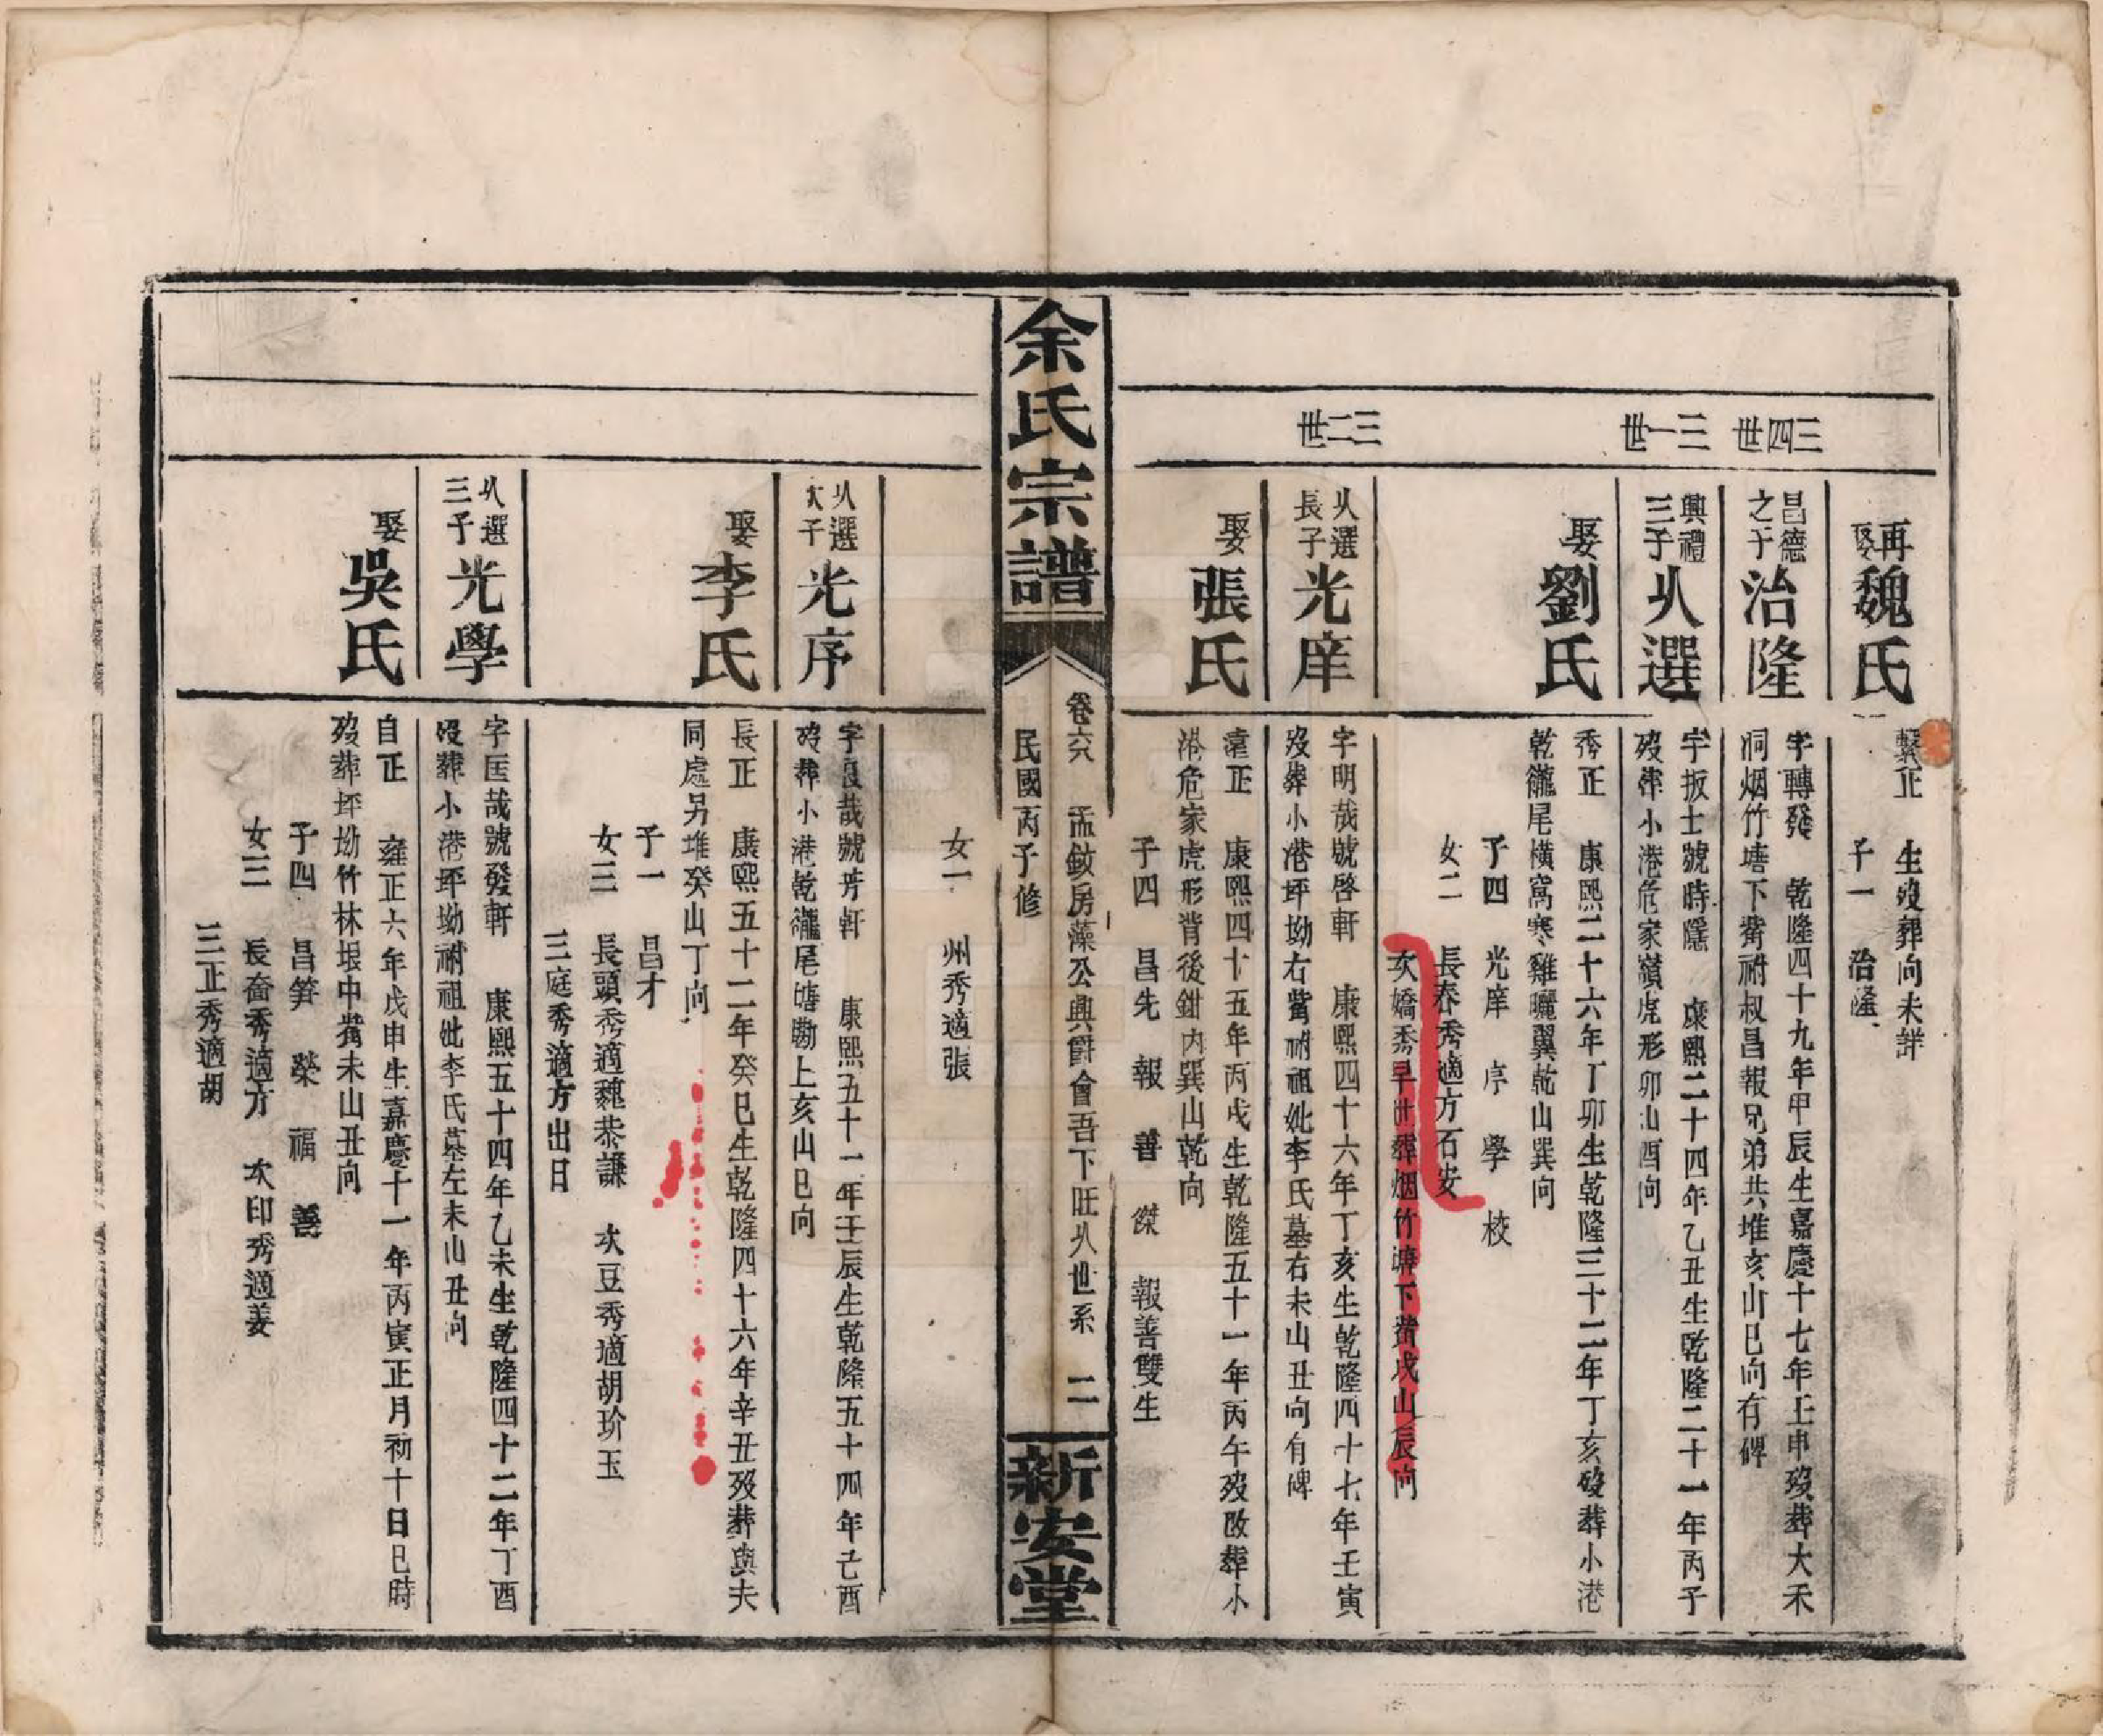 三四世
三一世
三二世
再娶魏氏
繫正　生歿葬向未詳
子一　治隆
昌德之子治隆
字轉發　乾隆四十九年甲辰生嘉慶十七年壬申歿葬大禾
洞烟竹塘下　祔叔昌報兄弟共堆亥山巳向有碑
興禮三子从選
字扳士號時隱　康熙二十四年乙丑生乾隆二十一年丙子
歿葬小港危家嶺虎形卯山酉向
娶劉氏
秀正　康熙二十六年丁卯生乾隆三十二年丁亥歿葬小港
乾龍尾橫窩寒雞曬翼乾山巽向
子四　光庠　序　學　校
女二　長春秀適方石安
次嬌秀早世葬烟竹塘下　戌山辰向
从選長子光庠
字明哉號啓軒　康熙四十六年丁亥生乾隆四十七年壬寅
歿葬小港坪坳右　祔祖妣李氏墓右未山丑向有碑
娶張氏
遠正　康熙四十五年丙戌生乾隆五十一年丙午歿改葬小
港危家虎形背後鉗內巽山乾向
子四　昌先　報　善　傑　報善雙生
余氏宗譜
卷六　孟敏房藻公興爵會吾下旺从世系　二
民國丙子修
新安堂
女一　州秀適張
从選次子光序
字良哉號芳軒　康熙五十一年壬辰生乾隆五十四年己酉
歿葬小港乾龍尾塘勘上亥山巳向
娶李氏
長正　康熙五十二年癸巳生乾隆四十六年辛丑歿葬與夫
同處另堆癸山丁向
子一　昌才
女三　長頭秀適魏恭謙　次豆秀適胡玠玉
三庭秀適方出日
从選三子光學
字匡哉號發軒　康熙五十四年乙未生乾隆四十二年丁酉
歿葬小港坪坳祔祖妣李氏墓左未山丑向
娶吳氏
自正　雍正六年戊申生嘉慶十一年丙寅正月初十日巳時
歿葬坪坳竹林垠中　未山丑向
子四　昌筭　榮　福　善
女三　長奮秀適方　次印秀適姜
三正秀適胡